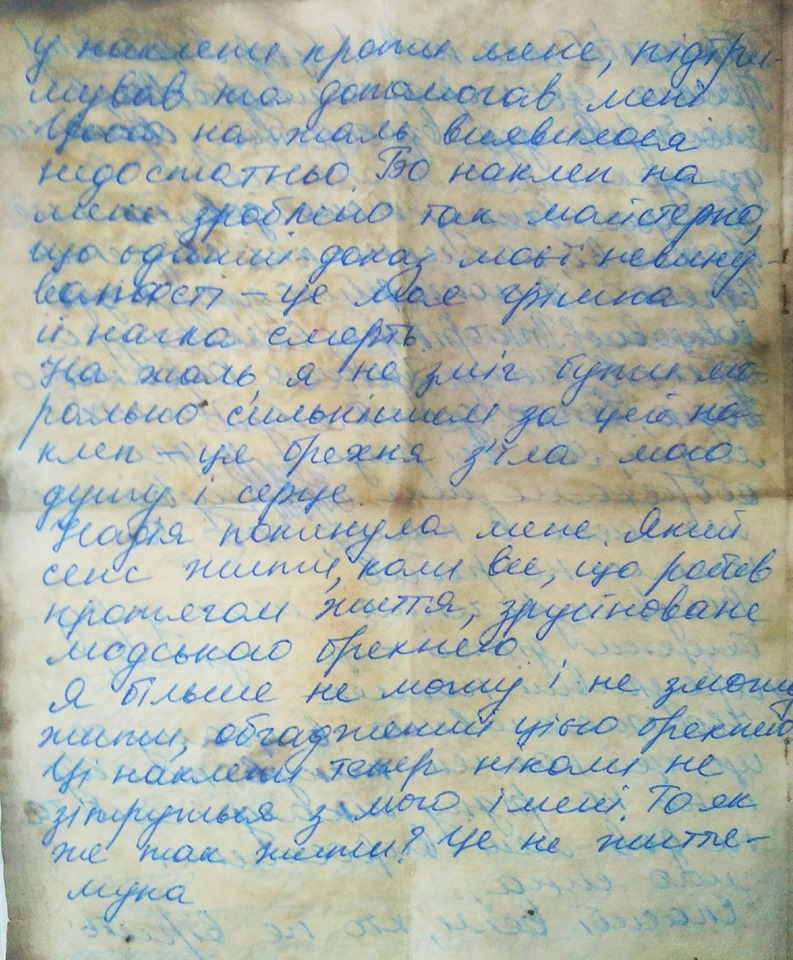 у наклепи проти мене, підтри-
мував та допомагав мені
Цього на жаль виявилося
недостатньо. Бо наклеп на
мене зроблено так майстерно,
що єдиний доказ моєї невину-
ватості – це моє грішна
й нагла смерть.
На жаль, я не зміг бути мо-
рально сильнішим за цей на-
клеп – ця брехня з'їла мою
душу і серце.
Надія покинула мене. Який
сенс жити, коли все, що робив
протягом життя, зруйноване
людською брехнею.
Я більше не можу і не зможу
жити, обгаджений цією брехнею.
Ці наклепи тепер ніколи не
зітруться з мого імені. То як
же так жити? Це не життя –
мука